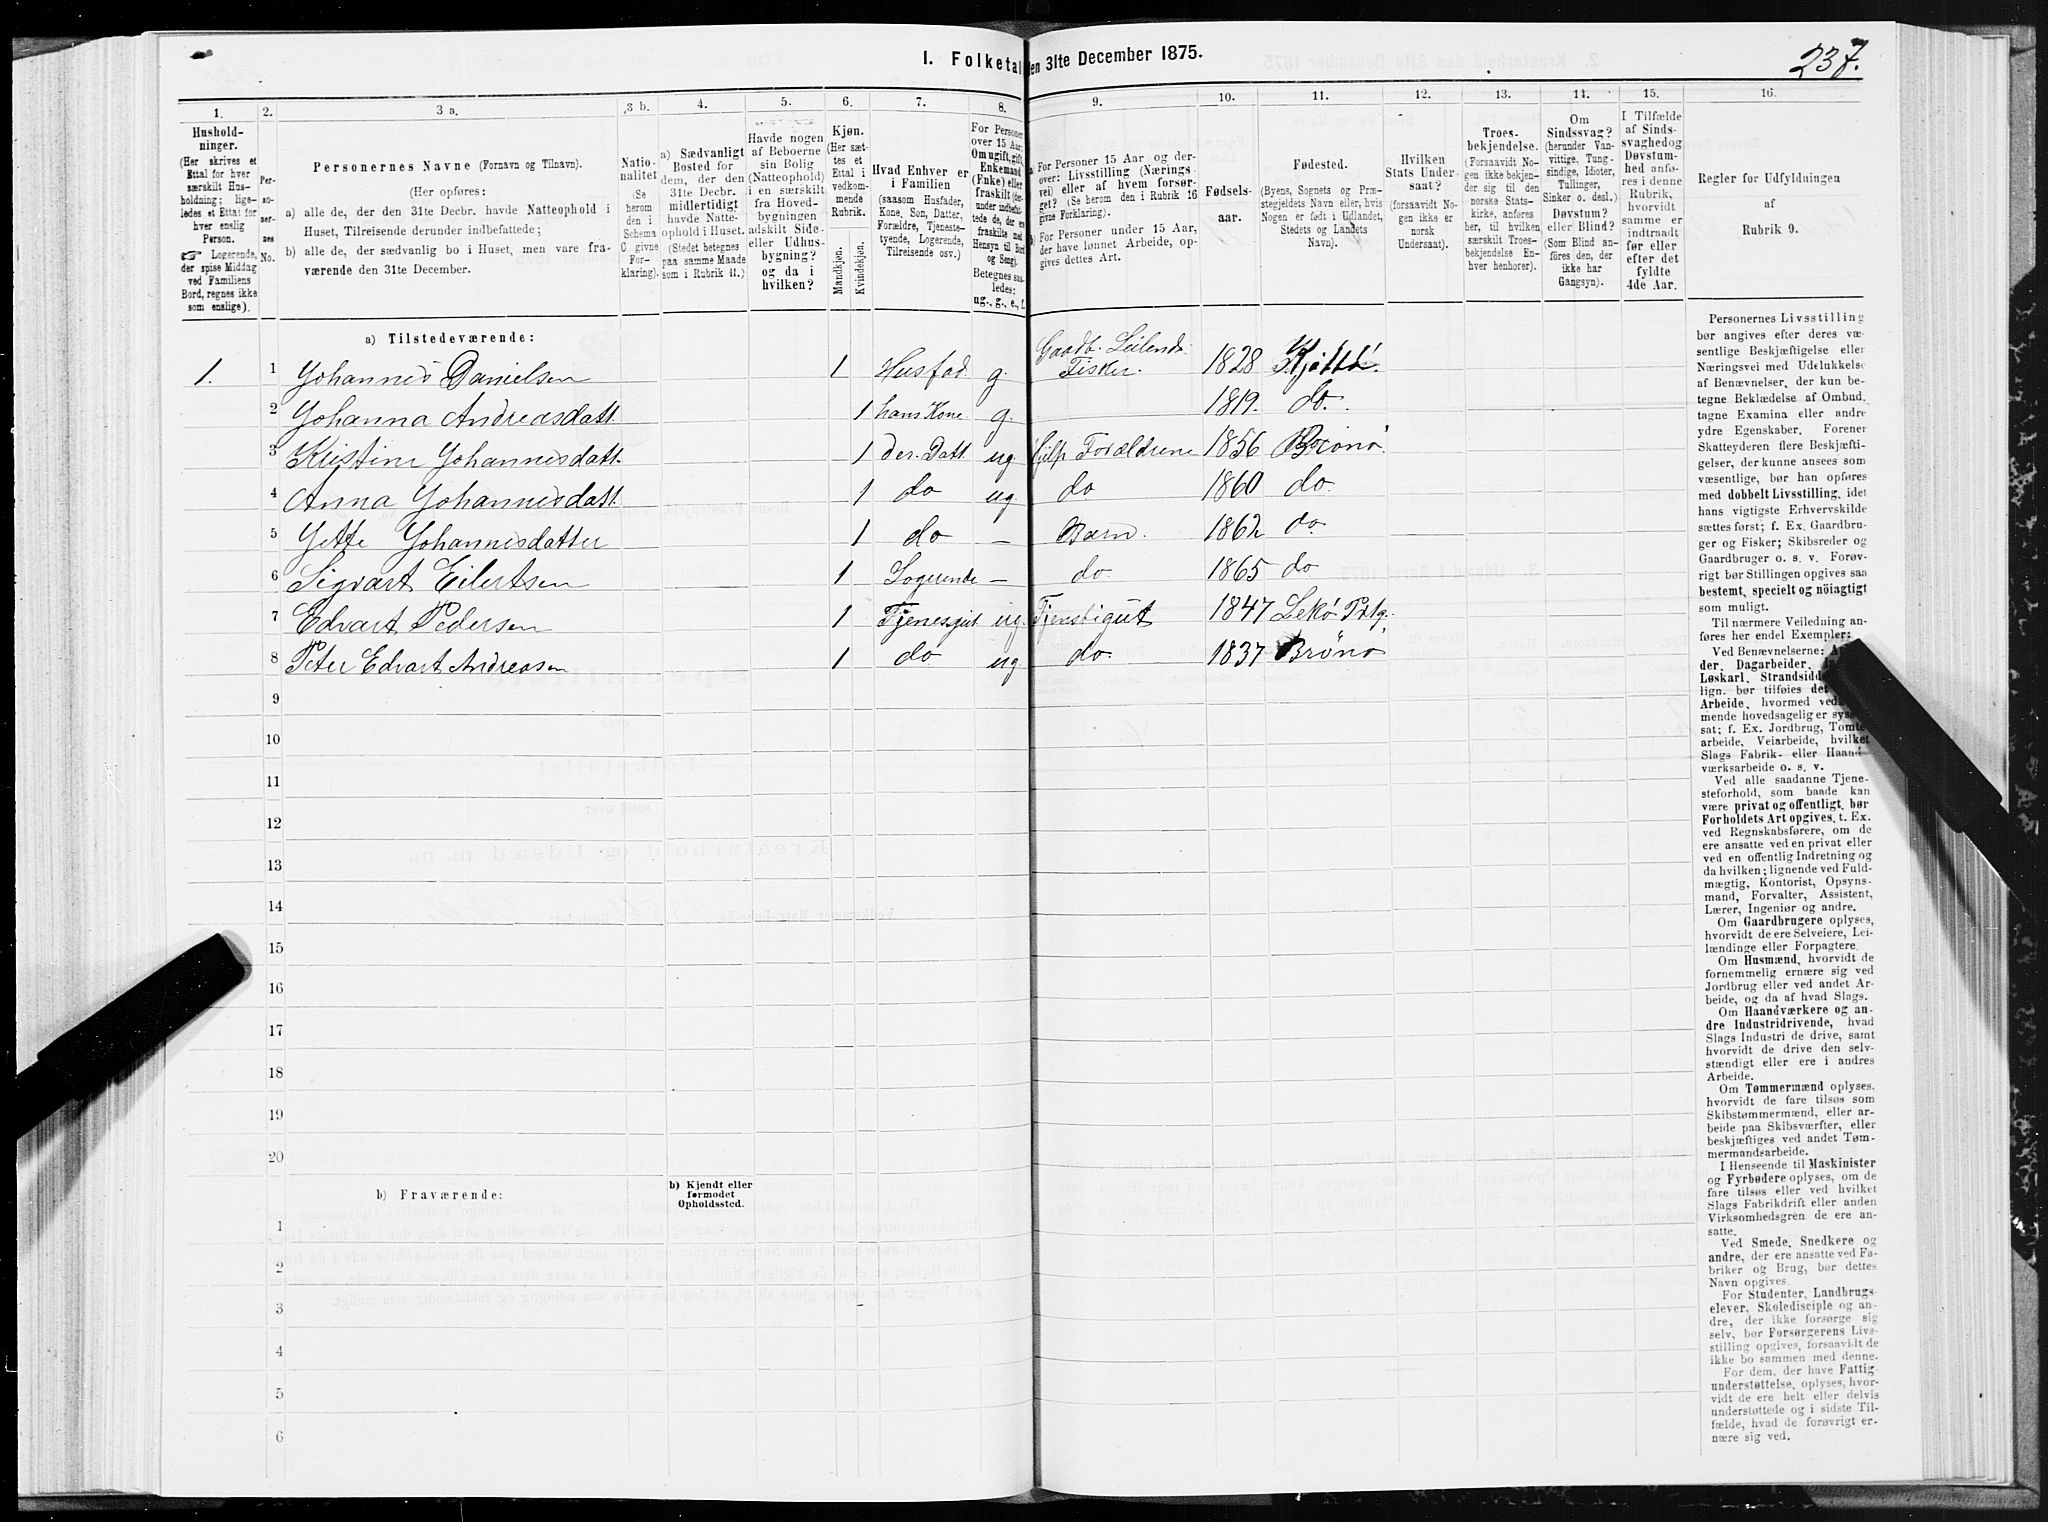 I. Folketal den 31te December 1875.
237.
1. 2. 3 a. 3 b. 4. 5. 6. 7. 8. 9. 10. 11. 12. 13. 14. 15. 16.
Hushold-
ninger.
(Her skrives et
Ettal for hver
særskilt Hus-
holdning; lige-
ledes et Ettal for
hver enslig
Person.
☞ Logerende,
der spise Middag
ved Familiens
Bord, regnes ikke
som enslige).
Per-
so-
ner-
nes
No.
Personernes Navne (Fornavn og Tilnavn).
(Her opføres:
a) alle de, der den 31te Decbr. havde Natteophold i
Huset, Tilreisende derunder indbefattede;
b) alle de, der sædvanlig bo i Huset, men vare fra-
værende den 31te December.
Natio-
nalitet
(Se
herom
den i
Schema
C givne
For-
klaring).
a) Sædvanligt
Bosted for
dem, der den
31te Decbr.
midlertidigt
havde Natte-
ophold i Huset.
(Stedet betegnes
paa samme Maade
som i Rubrik 11.)
Havde nogen
af Beboerne
sin Bolig
(Natteophold)
i en særskilt
fra Hoved-
bygningen
adskilt Side-
eller Udhus-
bygning?
og da i
hvilken?
Kjøn.
(Her sæt-
tes et
Ettal i
vedkom-
mende
Rubrik.
Mandkjøn.
Kvindekjøn.
Hvad Enhver er
i Familien
(saasom Husfader,
Kone, Søn, Datter,
Forældre, Tjeneste-
tyende, Logerende,
Tilreisende osv.)
For Personer
over 15 Aar:
Om ugift, gift,
Enkemand
(Enke) eller
fraskilt (der-
under indbefat-
tede de, der ere
fraskilte med
Hensyn til Bord
og Seng).
Betegnes saa-
ledes:
ug., g., e., f.
a) For Personer 15 Aar og der-
over: Livsstilling (Nærings-
vei) eller af hvem forsør-
get? (Se herom den i Rubrik 16
givne Forklaring).
b) For Personer under 15 Aar,
der have lønnet Arbeide, op-
gives dettes Art.
Fødsels-
aar.
Fødested.
(Byens, Sognets og Præ-
stegjeldets Navn eller, hvis
Nogen er født i Udlandet,
Stedets og Landets
Navn).
Hvilken
Stats Under-
saat?
(forsaavidt No-
gen ikke er
norsk
Undersaat).
Troes-
bekjendelse.
(Forsaavidt No-
gen ikke bekjen-
der sig til den
norske Stats-
kirke, anføres
her, til hvilken
særskilt Troes-
bekjendelse En-
hver henhører).
Om
Sindssvag?
(herunder Van-
vittige, Tung-
sindige, Idioter,
Tullinger,
Sinker o. desl.)
Døvstum?
eller Blind?
(Som Blind an-
føres den, der
ikke har
Gangsyn).
I Tilfælde
af Sinds-
svaghed og
Døvstum-
hed anfø-
res i denne
Rubrik,
hvorvidt
samme er
indtraadt
før eller
efter det
fyldte
4de Aar.
Regler for Udfyldningen
af
Rubrik 9.
a) Tilstedeværende:
1. 1 Johannes Danielsen 1 Husfad. g. Gaardb. Leilend. Fisker. 1828 Kjøttø.
2 Johanna Andreasdatt 1 hans Kone. g. 1819. do.
3 Kristine Johannesdatt. 1 der. Datt. ug Hjelp Forældrene 1856 Brønø
4 Anna Johannesdatt 1 do ug. do 1860 do.
5 Jette Johannesdatter 1 do — Barn. 1862 do.
6 Sigvart Eilertsen 1 Logerende — do. 1865 do
7 Edvart Pedersen 1 Tjenesgut ug. Tjenstigut 1847 Lekø Prtg.
8 Peter Edvart Andreasen 1 do ug do. 1837 Brønø
9
10
11
12
13
14
15
16
17
18
19
20
b) Fraværende:
b) Kjendt eller
formodet
Opholdssted.
1
2
3
4
5
6
Personernes Livsstilling
bør angives efter deres væ-
sentlige Beskjæftigelse eller
Næringsvei med Udelukkelse
af Benævnelser, der kun be-
tegne Beklædelse af Ombud,
tagne Examina eller andre
ydre Egenskaber. Forener
Skatteyderen flere Beskjæfti-
gelser, der kunne ansees som
væsentlige, bør han opføres
med dobbelt Livsstilling, idet
hans vigtigste Erhvervskilde
sættes først; f. Ex. Gaardbru-
ger og Fisker; Skibsreder og
Gaardbruger o. s. v. Forøv-
rigt bør Stillingen opgives saa
bestemt, specielt og nøiagtigt
som muligt.
Til nærmere Veiledning an-
føres her endel Exempler:
Ved Benævnelserne:
der, Dagarbeider,
Løskarl, Strandsidd
lign. bør tilføies det
Arbeide, hvormed ved
mende hovedsagelig er sys
sat; f. Ex. Jordbrug, Tomte-
arbeide, Veiarbeide, hvilket
Slags Fabrik- eller Haand-
værksarbeide o. s. v.
Ved alle saadanne Tjene-
steforhold, som baade kan
være privat og offentligt, bør
Forholdets Art opgives, t. Ex.
ved Regnskabsførere, om de
ere ansatte ved en privat eller
ved en offentlig Indretning og
da hvilken; lignende ved Fuld-
mægtig, Kontorist, Opsyns-
mand, Forvalter, Assistent,
Lærer, Ingeniør og andre.
Om Gaardbrugere oplyses,
hvorvidt de ere Selveiere, Lei-
lændinge eller Forpagtere.
Om Husmænd, hvorvidt de
fornemmelig ernære sig ved
Jordbrug eller ved andet Ar-
beide, og da af hvad Slags.
Om Haandværkere og an-
dre Industridrivende, hvad
Slags Industri de drive, samt
hvorvidt de drive den selv-
stændigt eller ere i andres
Arbeide.
Om Tømmermænd oplyses,
hvorvidt de fare tilsøs som
Skibstømmermænd, eller ar-
beide paa Skibsværfter, eller
beskjæftiges ved andet Tøm-
mermandsarbeide.
I Henseende til Maskinister
og Fyrbødere oplyses, om de
fare tilsøs eller ved hvilket
Slags Fabrikdrift eller anden
Virksomhedsgren de ere an-
satte.
Ved Smede, Snedkere og
andre, der ere ansatte ved Fa-
briker og Brug, bør dettes
Navn opgives.
For Studenter, Landbrugs-
elever, Skoledisciple og an-
dre, der ikke forsørge sig
selv, bør Forsørgerens Livs-
stilling opgives, forsaavidt de
ikke bo sammen med denne.
For dem, der have Fattig-
understøttelse, oplyses, hvor-
vidt de ere helt eller delvis
understøttede og i sidste Til-
fælde, hvad de forøvrigt er-
nære sig ved.